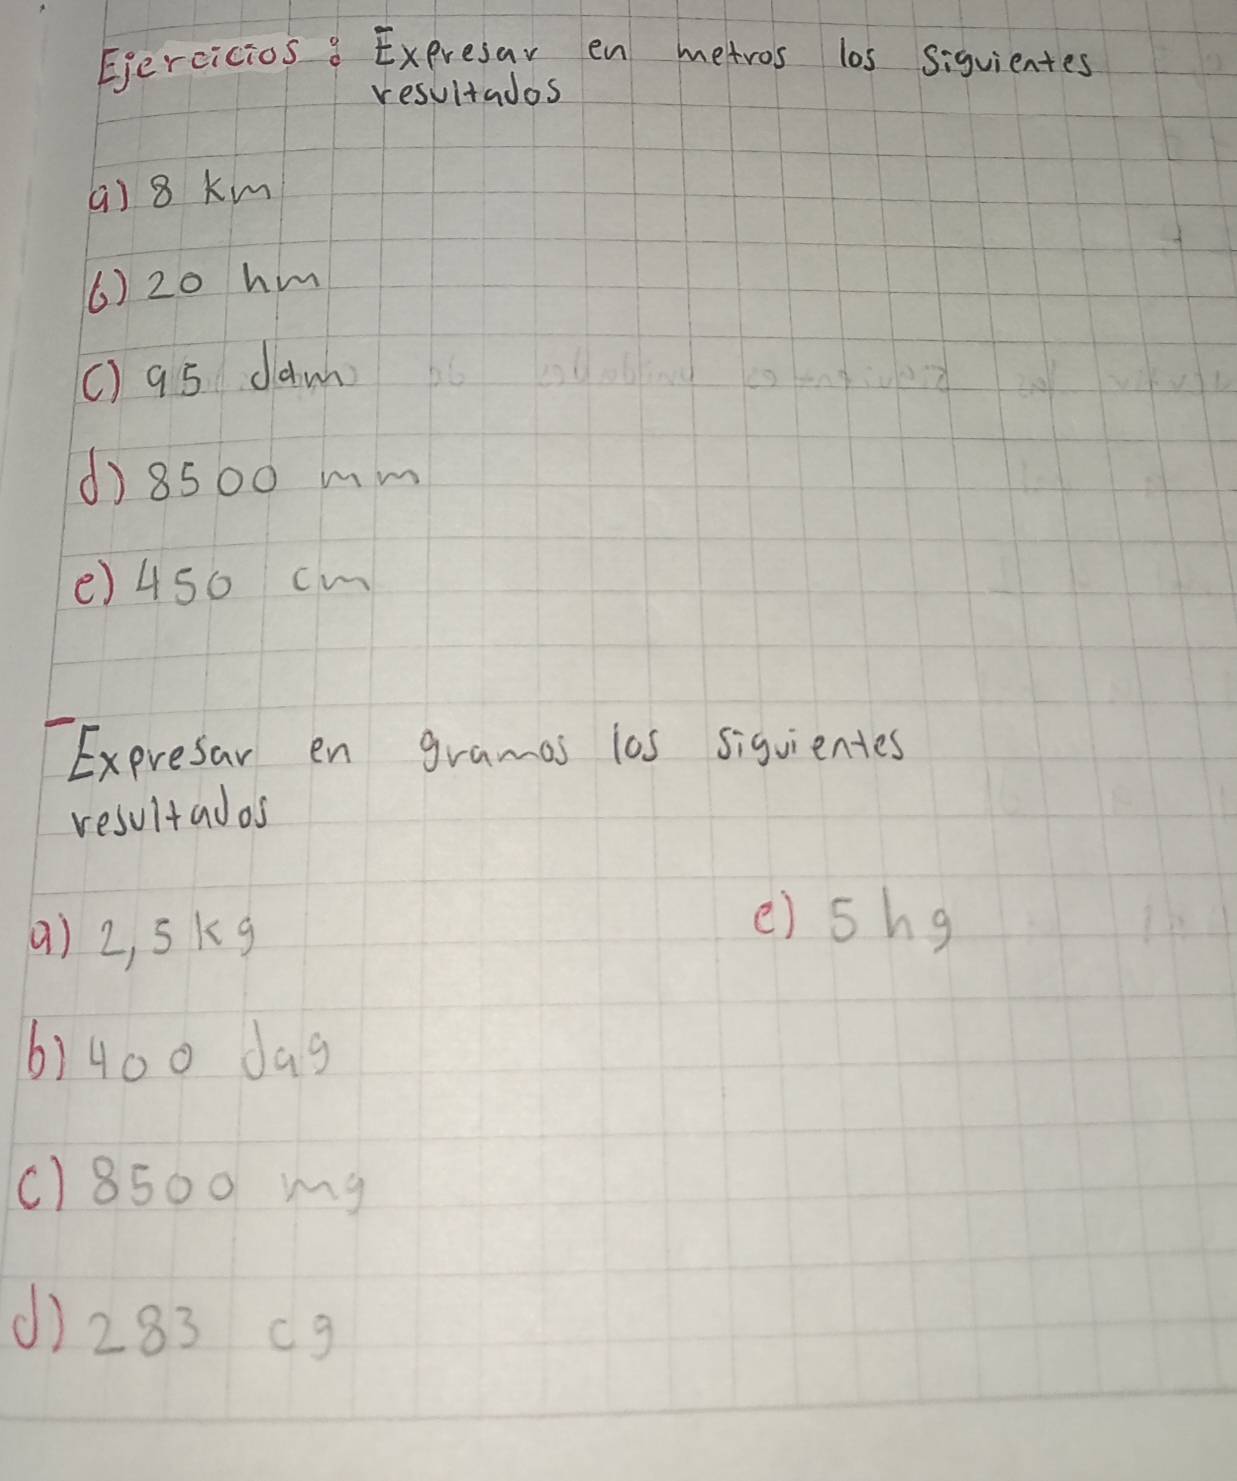 Ejercicios: Expresar en metros los siguientes
resultados
a) 8 km
b) 20 hm
c) 95 dam
d) 8500 mm
e) 450 cm
- Expresar en gramos los siguientes
resultados
a) 2,5 kg
e) 5 hg
b) 400 dag
c) 8500 mg
d) 283 cg